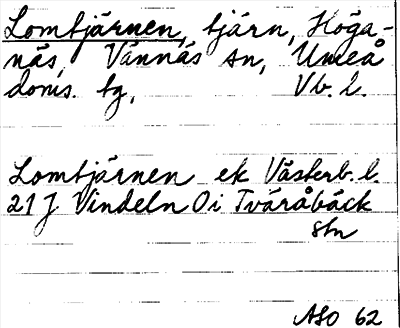 Lomtjärnen, tjärn, Höga-
näs, Vännäs sn, Umeå
doms. tg, Vb. l.
Lomtjärnen ek Västerb. l
21 J Vindeln O i Tväråbäck
stn
ASO 62